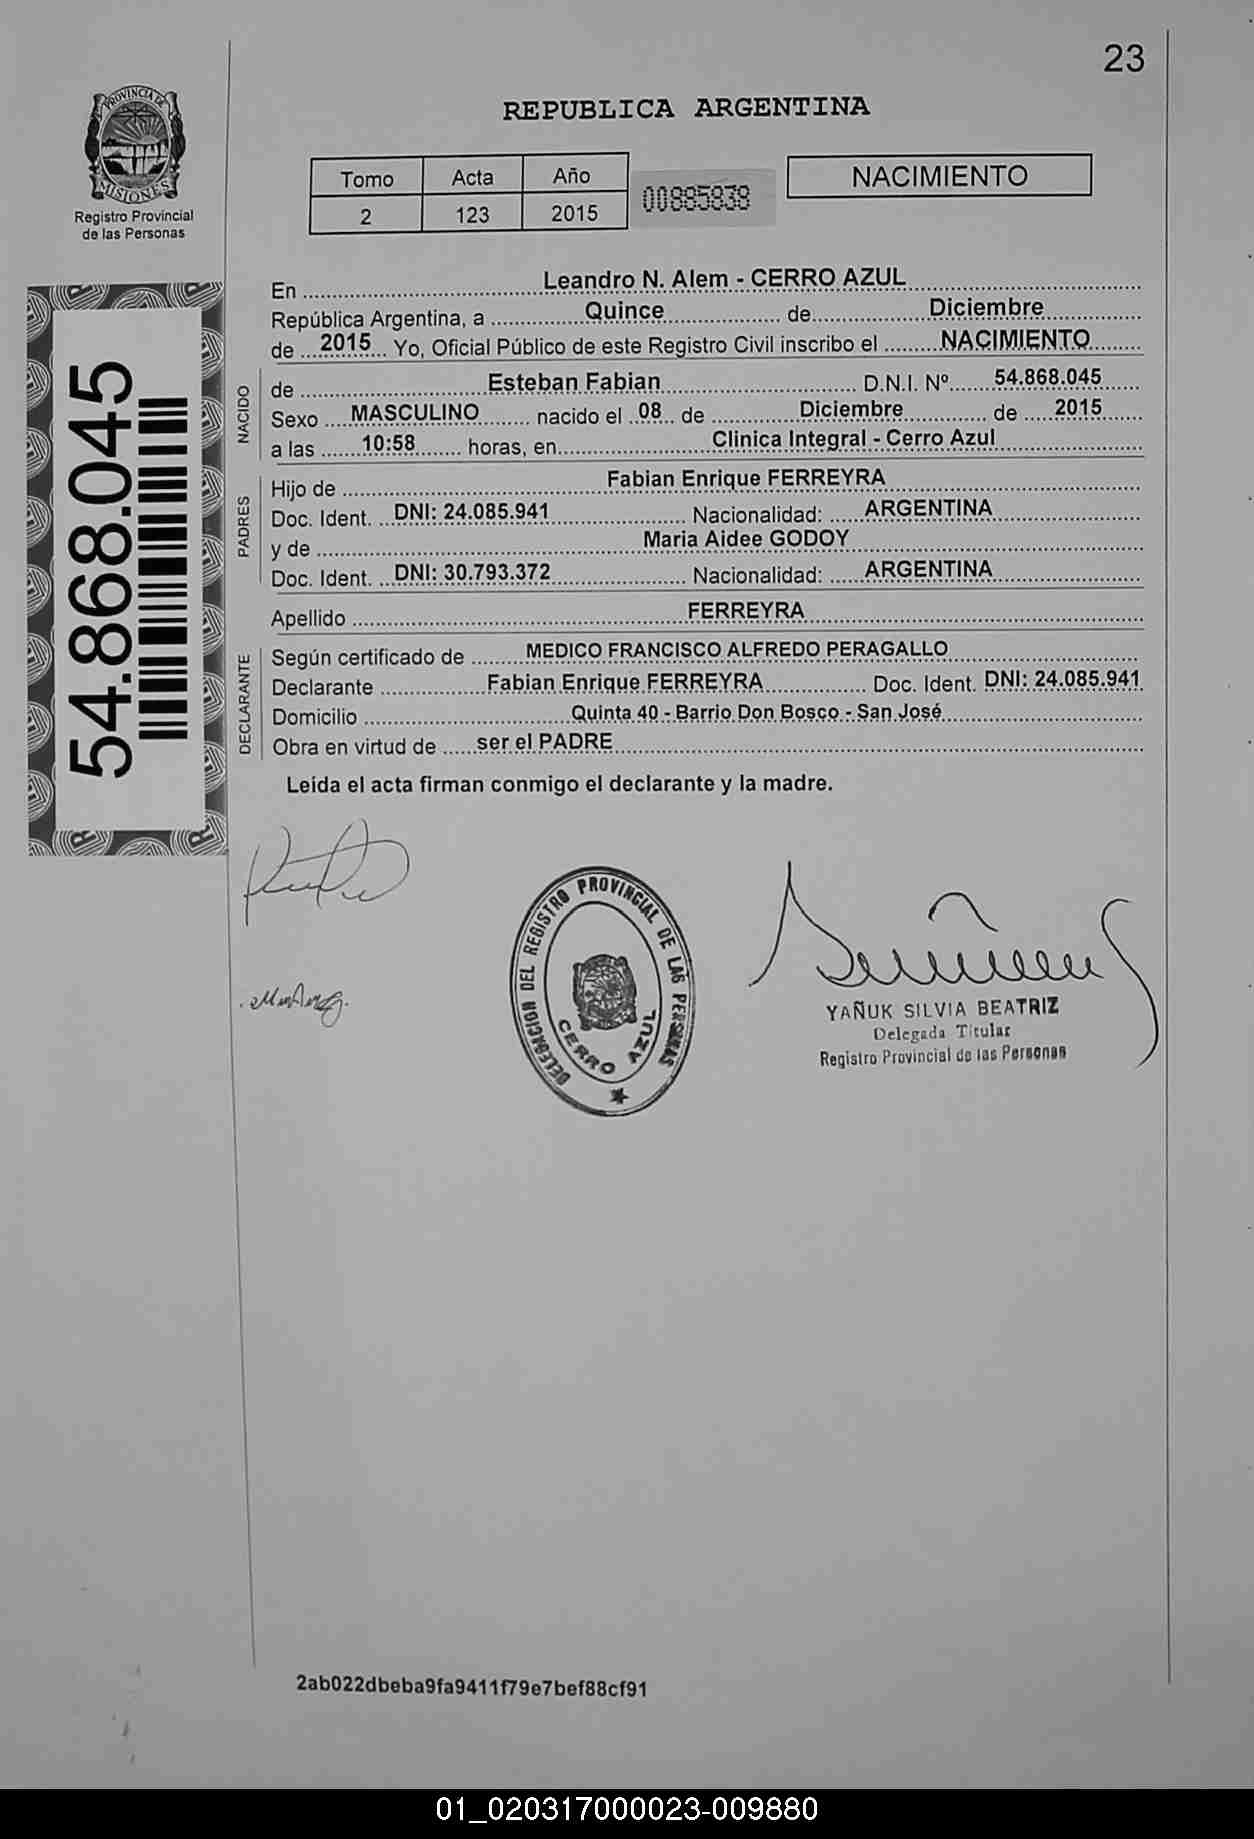 23
PROVINCIA DE
MISIONES
Registro Provincial
de las Personas
REPUBLICA ARGENTINA
Tomo Acta Año
2 123 2015
00885838
NACIMIENTO
54.868.045
En Leandro N. Alem - CERRO AZUL
República Argentina, a Quince de Diciembre
de 2015 Yo, Oficial Público de este Registro Civil inscribo el NACIMIENTO
NACIDO
de Esteban Fabian D.N.I. Nº 54.868.045
Sexo MASCULINO nacido el 08 de Diciembre de 2015
a las 10:58 horas, en Clinica Integral - Cerro Azul
PADRES
Hijo de Fabian Enrique FERREYRA
Doc. Ident. DNI: 24.085.941 Nacionalidad: ARGENTINA
y de Maria Aidee GODOY
Doc. Ident. DNI: 30.793.372 Nacionalidad: ARGENTINA
Apellido FERREYRA
DECLARANTE
Según certificado de MEDICO FRANCISCO ALFREDO PERAGALLO
Declarante Fabian Enrique FERREYRA Doc. Ident. DNI: 24.085.941
Domicilio Quinta 40 - Barrio Don Bosco - San José
Obra en virtud de ser el PADRE
Leida el acta firman conmigo el declarante y la madre.
DELEGACION DEL REGISTRO PROVINCIAL DE LAS PERSONAS
CERRO AZUL
YAÑUK SILVIA BEATRIZ
Delegada Titular
Registro Provincial de las Personas
2ab022dbeba9fa9411f79e7bef88cf91
01_020317000023-009880